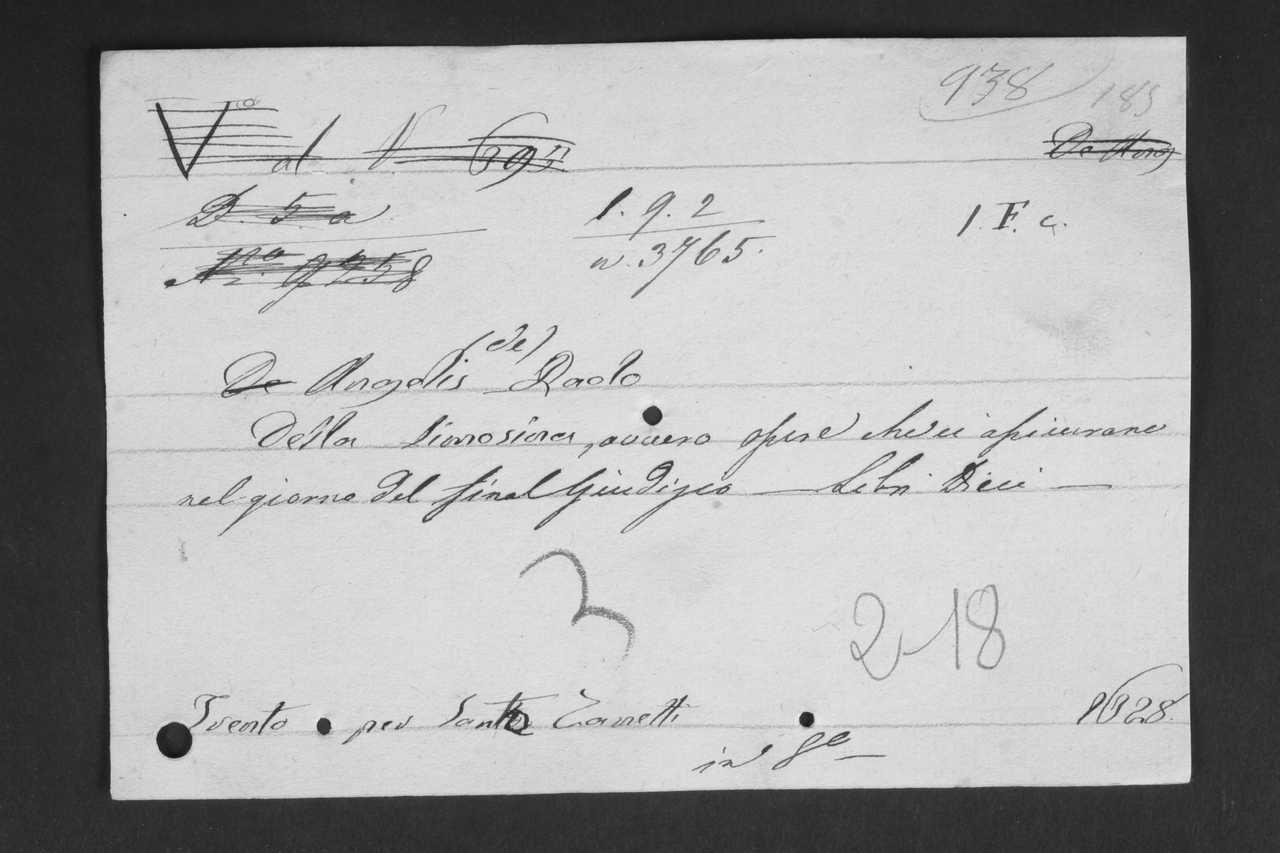 938 183
V.o al N. 6911
De Ang
D. 5. a 1. 9. 2 1. F. c.
No. 9258 n. 3765.
(de)
De Angelis Paolo
Della Limosina, ovvero opere che ci assicurano
nel giorno del final Giudizio — Libri Dieci —
3
2-18
Trento per Santo Zanetti 1628.
in 8o —